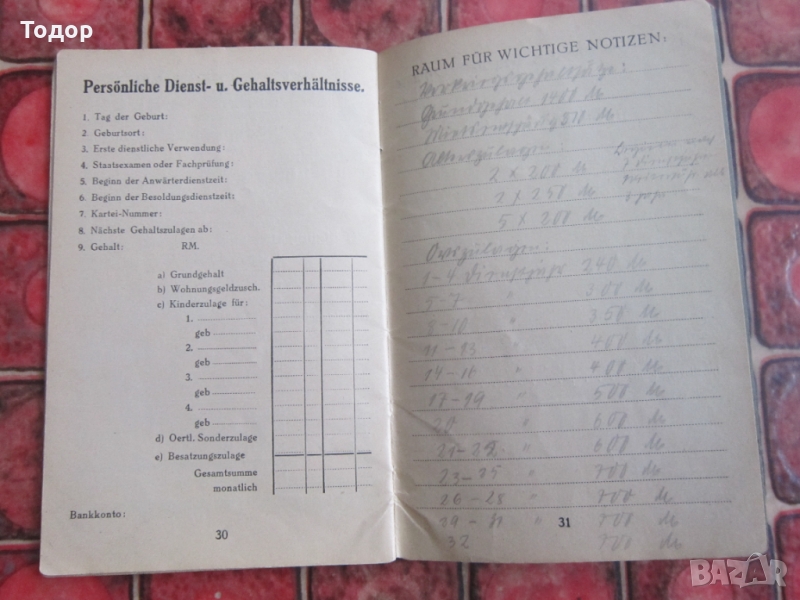 Todor
Persönliche Dienst- u. Gehaltsverhältnisse.
1. Tag der Geburt:
2. Geburtsort:
3. Erste dienstliche Verwendung:
4. Staatsexamen oder Fachprüfung:
5. Beginn der Anwärterdienstzeit:
6. Beginn der Besoldungsdienstzeit:
7. Kartei-Nummer:
8. Nächste Gehaltszulagen ab:
9. Gehalt: RM.
a) Grundgehalt
b) Wohnungsgeldzusch.
c) Kinderzulage für:
1.
geb
2.
geb
3.
geb
4.
geb
d) Oertl. Sonderzulage
e) Besatzungszulage
Gesamtsumme
monatlich
Bankkonto:
30
RAUM FÜR WICHTIGE NOTIZEN:
Grundgehalt 1400 M
Alterszulagen:
2 x 200 M
2 x 250 M
5 x 200 M
Ortszulagen:
1-4 Dienstjahr 240 M
5-7 " 300 M
8-10 " 350 M
11-13 400 M
14-16 " 400 M
17-19 500 M
600 M
" 600 M
23-25 " 700 M
26-28 " 700 M
" 700 M
31
32 700 M
BAZAR